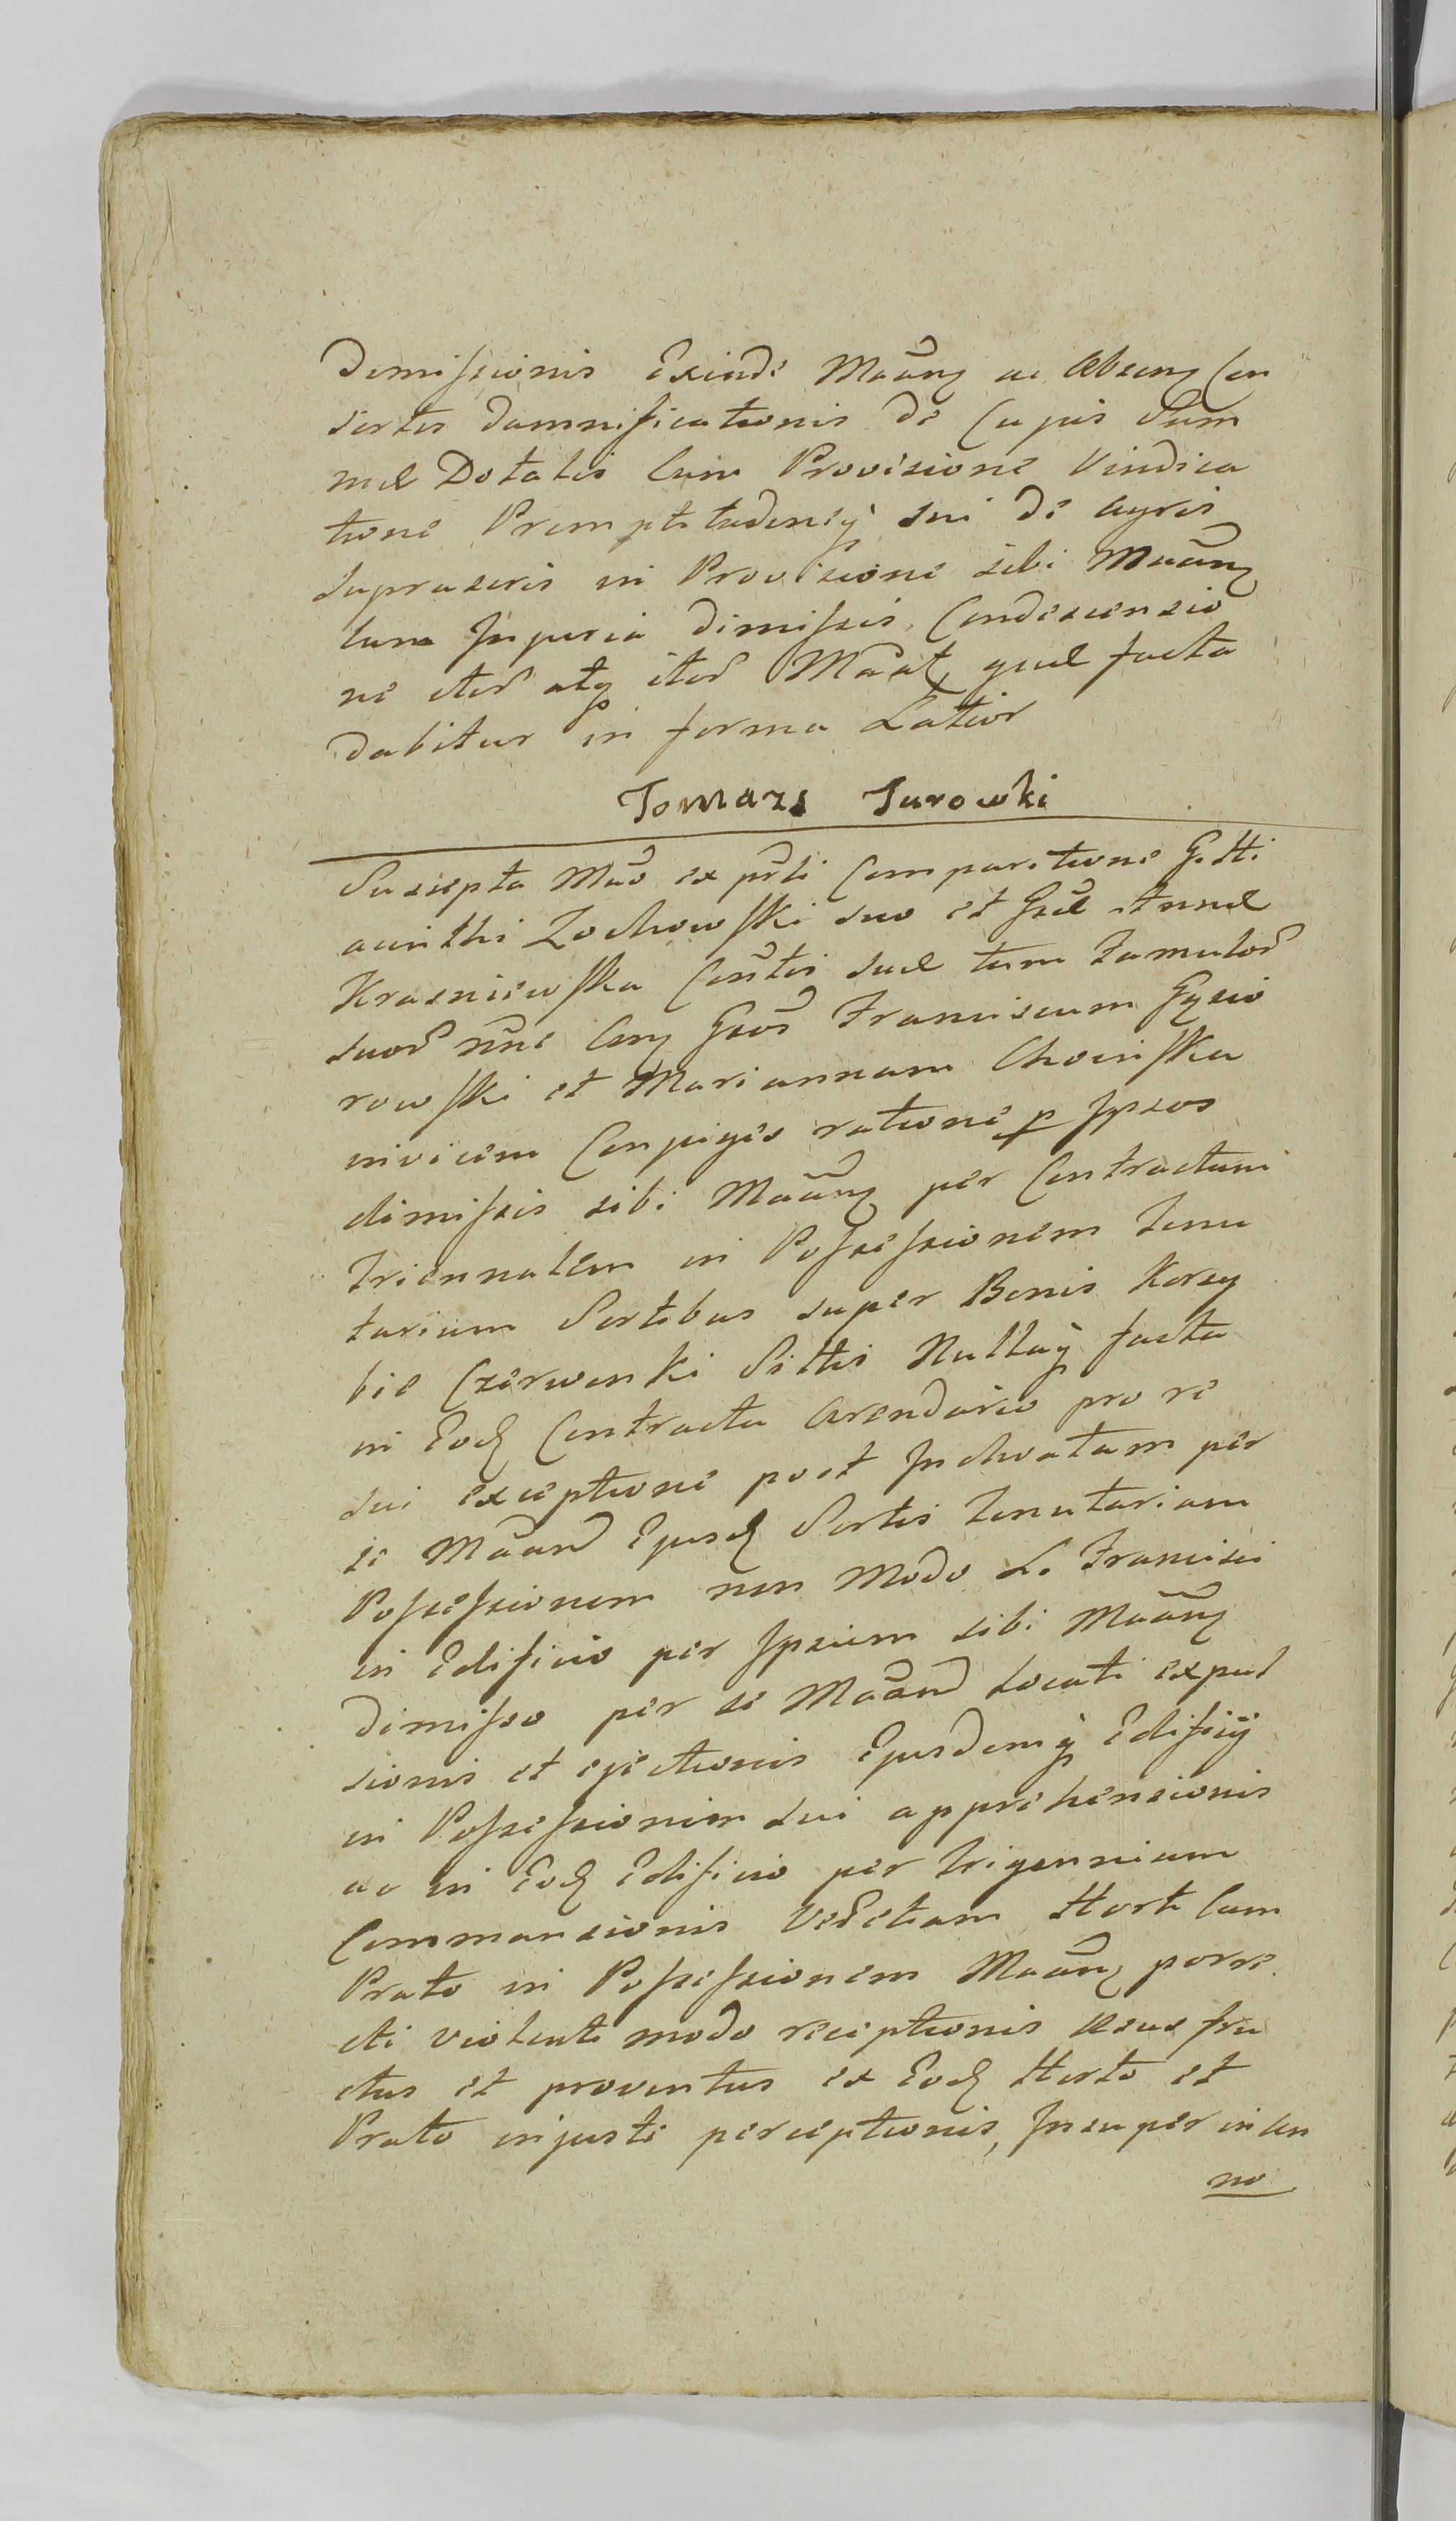 Dimissionis Exinde Mãanʒ ac Absenʒ Con
sortis damnificationis de Cujus Sum
mæ Dotalis Cum Provisione Vindica
tione Promptitudinesq̃ sui de agris
supraseris in Provisione sibi Mãanʒ
cum Injuria dimissis, Condescensio
ne iterũ atq iterũ Mãat, quæ facta
dabitur in forma Latior
Tomazs Turowki
Suscepta Mão ex prti Comparitione G. Hi
acinthi Zochowski suo et Gsæ Annæ
Krasniewska Contis suæ tum Famulorũ
suorũ nñe Conʒ Gsos Franciscum Gysio
rowski et Mariannam Choinska
invicem Conjuges ratione p Ipsos
dimissis sibi Mãanʒ per Contractum
Triennalem in Possessionem Tenu
tariam Sortibus super Bonis Korzy
bie Czerwonki Sittis Nullaq̃ facta
in Eod Contractu Arendario pro re
sui exceptione post Inchoatam per
se Mãand Ejusd Sortis Tenutariam
Possessionem non modo L. Francisci
in Edificio per Ipsum sibi Mãanʒ
dimisso per se Mãand Locati expul
sionis et ejectionis Ejusdemq̃ Edificij
in Possessionem sui apprehensionis
ac in Eod Edificio per Trigennium
Commansionis Vedetiam Horti Cum
Prato in Possessionem Mãanʒ porre
cti violenti modo receptionis Usus fru
ctus et proventus ex Eod Horto et
Prato injusti perceptionis, Insuper in An
no